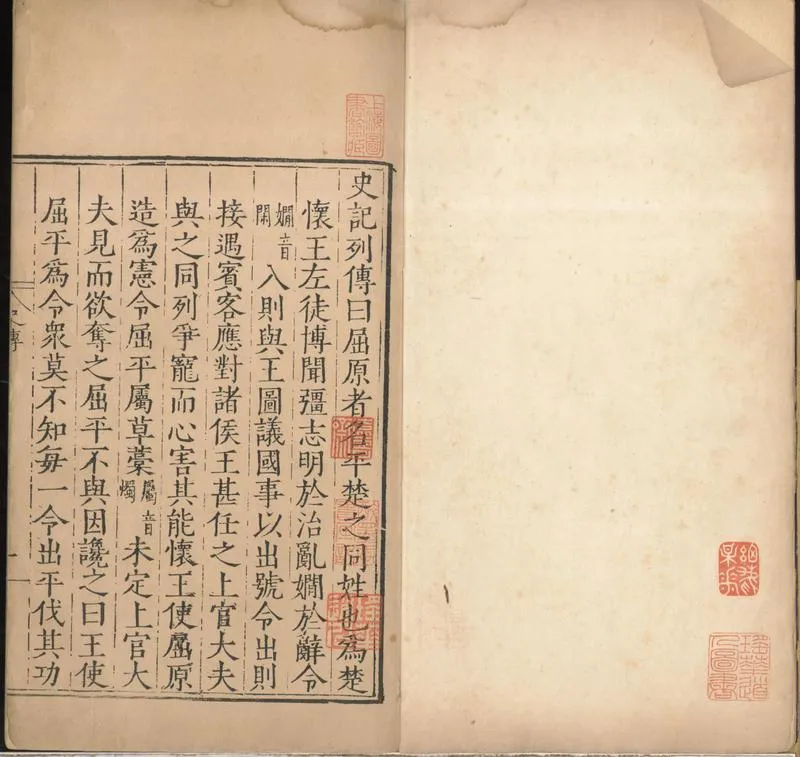 史記列傳曰屈原者名平楚之同姓也爲楚
懷王左徒博聞彊志明於治亂嫺於辭令
嫺音閑入則與王圖議國事以出號令出則
接遇賓客應對諸侯王甚任之上官大夫
與之同列爭寵而心害其能懷王使屬原
造爲憲令屈平屬草藁屬音燭未定上官大
夫見而欲奪之屈平不與因讒之曰王使
屈平爲令衆莫不知每一令出平伐其功
史傳
一
上海圖書館藏